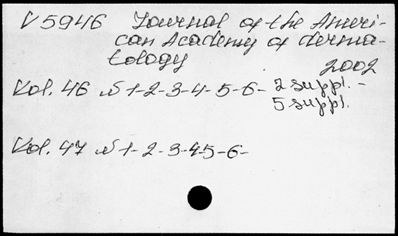 V 5946 Journal of the Ameri-
can Academy of derma-
tology
2002
Vol. 46 N 1-2-3-4-5-6- 2 suppl. -
5 suppl.
Vol. 47 N 1-2-3-4-5-6-